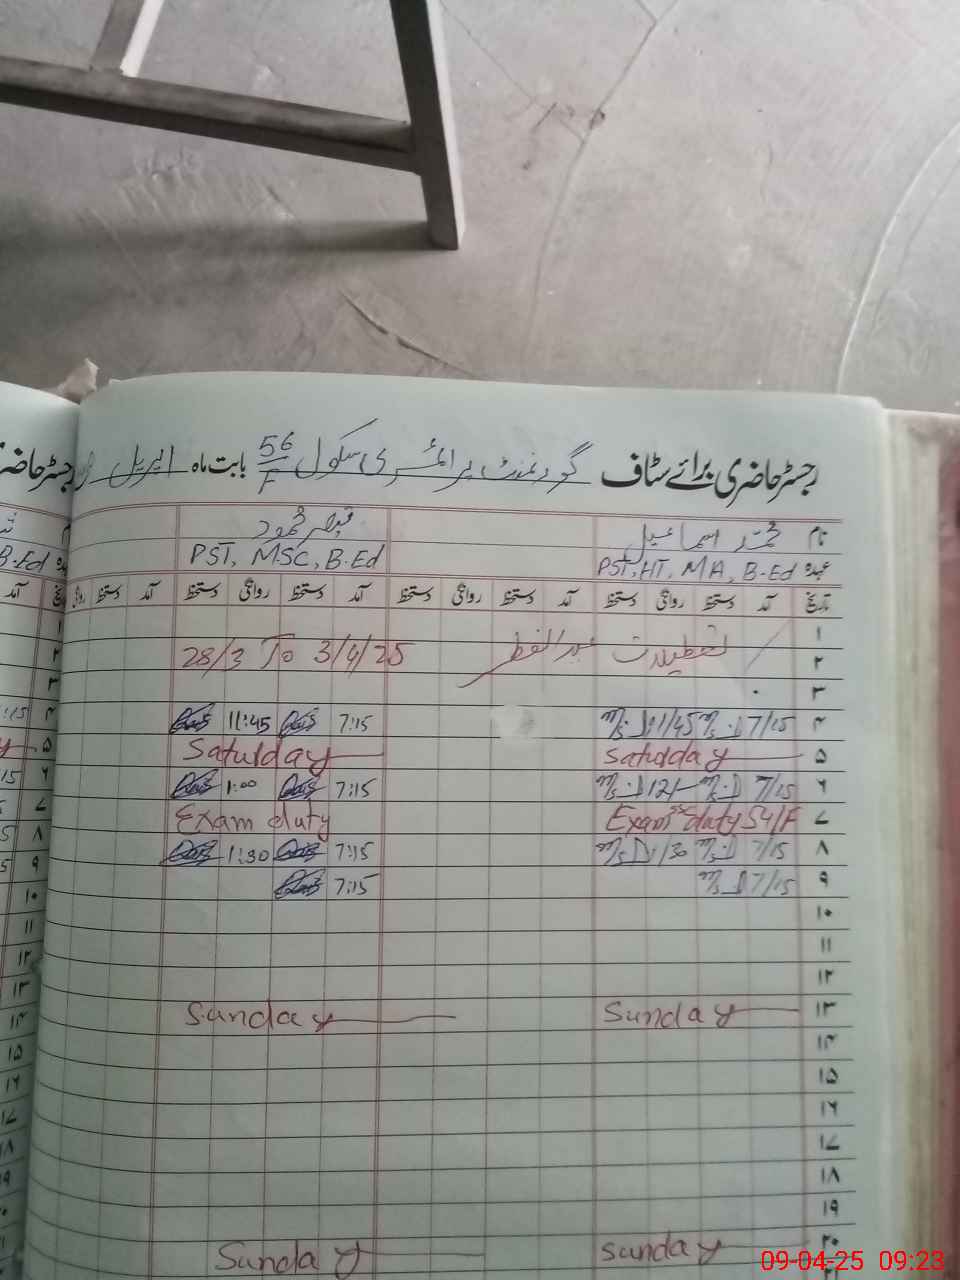 رجسٹر حاضری برائے سٹاف گورنمنٹ پرائمری سکول 56/F بابت ماہ اپریل
نام محمد اسماعیل قیصر محمود
عہدہ PST, HT, MA, B-Ed PST, MSC, B.Ed
تاریخ آمد دستخط روانگی دستخط آمد دستخط روانگی دستخط آمد دستخط روانگی دستخط آمد دستخط
۱
۲ تعطیلات عیدالفطر 28/3 To 3/4/25
۳
۴ 7/15 1/45 7:15 11:45
۵ Saturday Saturday
۶ 7/15 12/- 7:15 1:00
۷ Exam duty 54/F Exam duty
۸ 7/15 1/30 7:15 1:30
۹ 7/15 7:15
۱۰
۱۱
۱۲
۱۳ Sunday Sunday
۱۴
۱۵
۱۶
۱۷
۱۸
۱۹
۲۰ Sunday Sunday
09-04-25 09:23